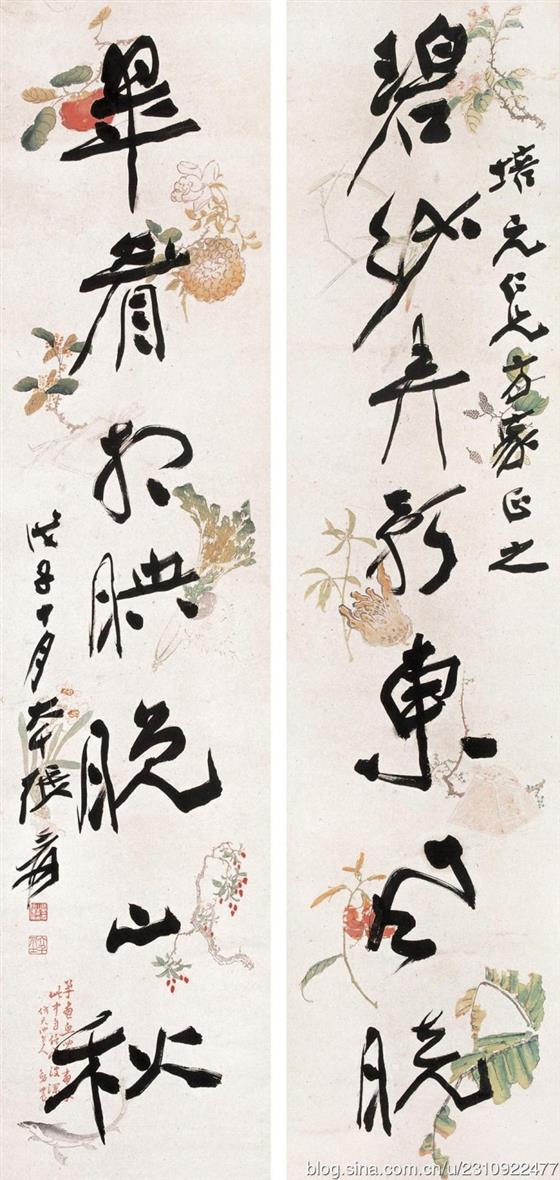 碧紗弄影東風曉
培元仁兄方家正之
翠眉相映晚山秋
戊子十月大千張爰
blog.sina.com.cn/u/2310922477